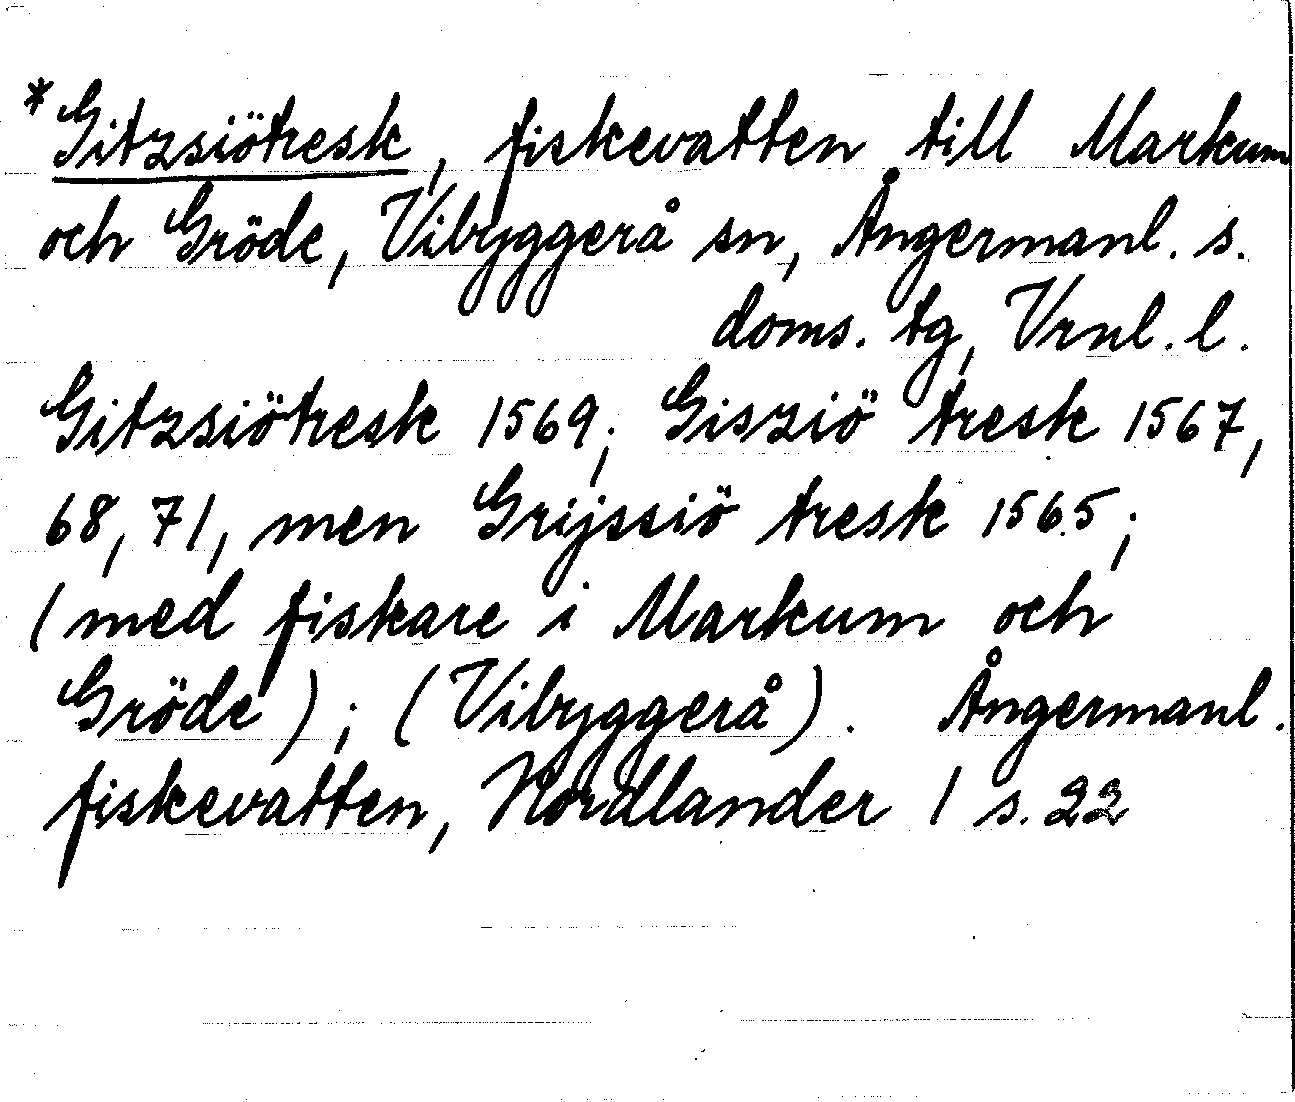 *Gitzsiötresk, fiskevatten till Markum
och Gröde, Vibyggerå sn, Ångermanl. s.
doms. tg, Vrnl. l.
Gitzsiötresk 1569; Gisziö tresk 1567,
68, 71, men Grijssiö tresk 1565;
(med fiskare i Markum och
Gröde); (Vibyggerå). Ångermanl.
fiskevatten, Nordlander 1 s. 22